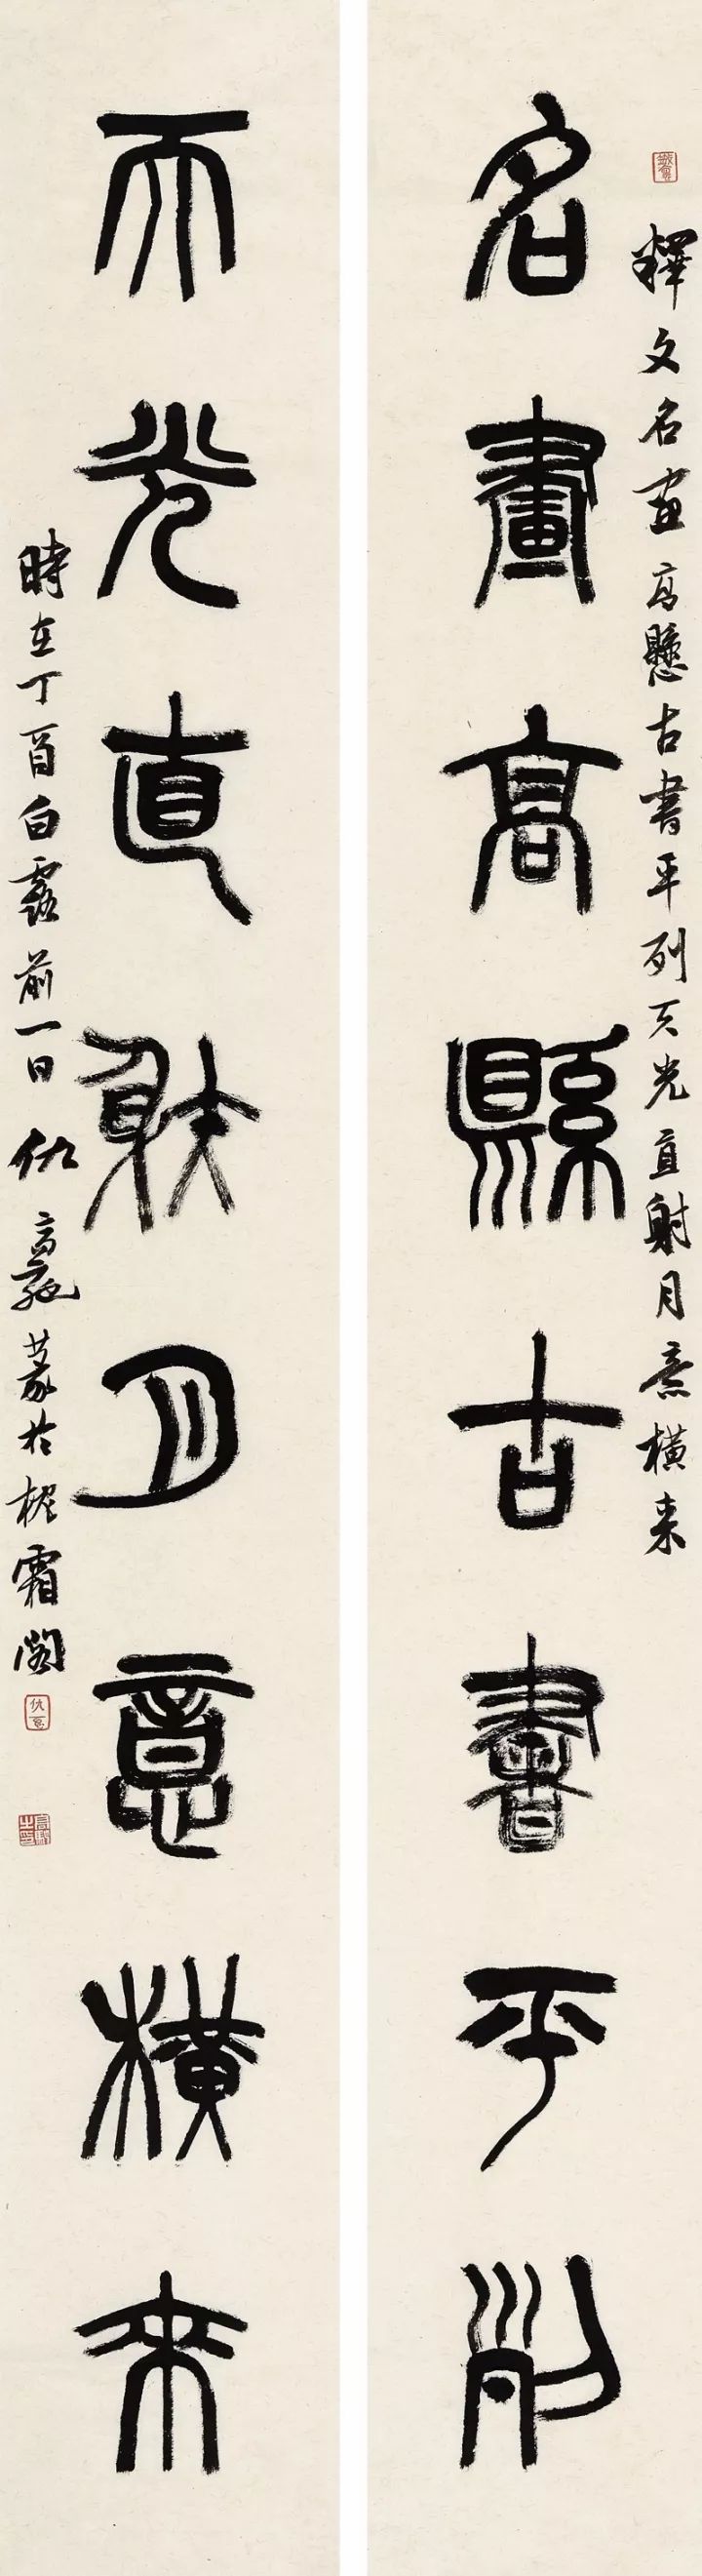 釋文名畫高懸古書平列天光直射月意橫來
名畫高縣古書平列
天光直射月意橫來
時在丁酉白露前一日仇高馳篆於樅霜閣